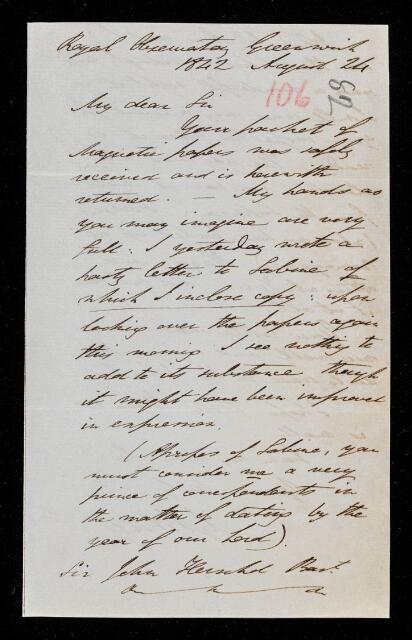 Royal Observatory Greenwich
1842 August 24
106
78
My dear Sir
Your packet of
Magnetic papers was safely
received and is herewith
returned. — My hands as
you may imagine are very
full. I yesterday wrote a
hasty letter to Sabine of
which I inclose copy: upon
looking over the papers again
this morning I see nothing to
add to its substance though
it might have been improved
in expression.
(Apropos of Sabine, you
must consider me a very
prince of correspondents in
the matter of dating by the
year of our Lord).
Sir John Herschel Bart.